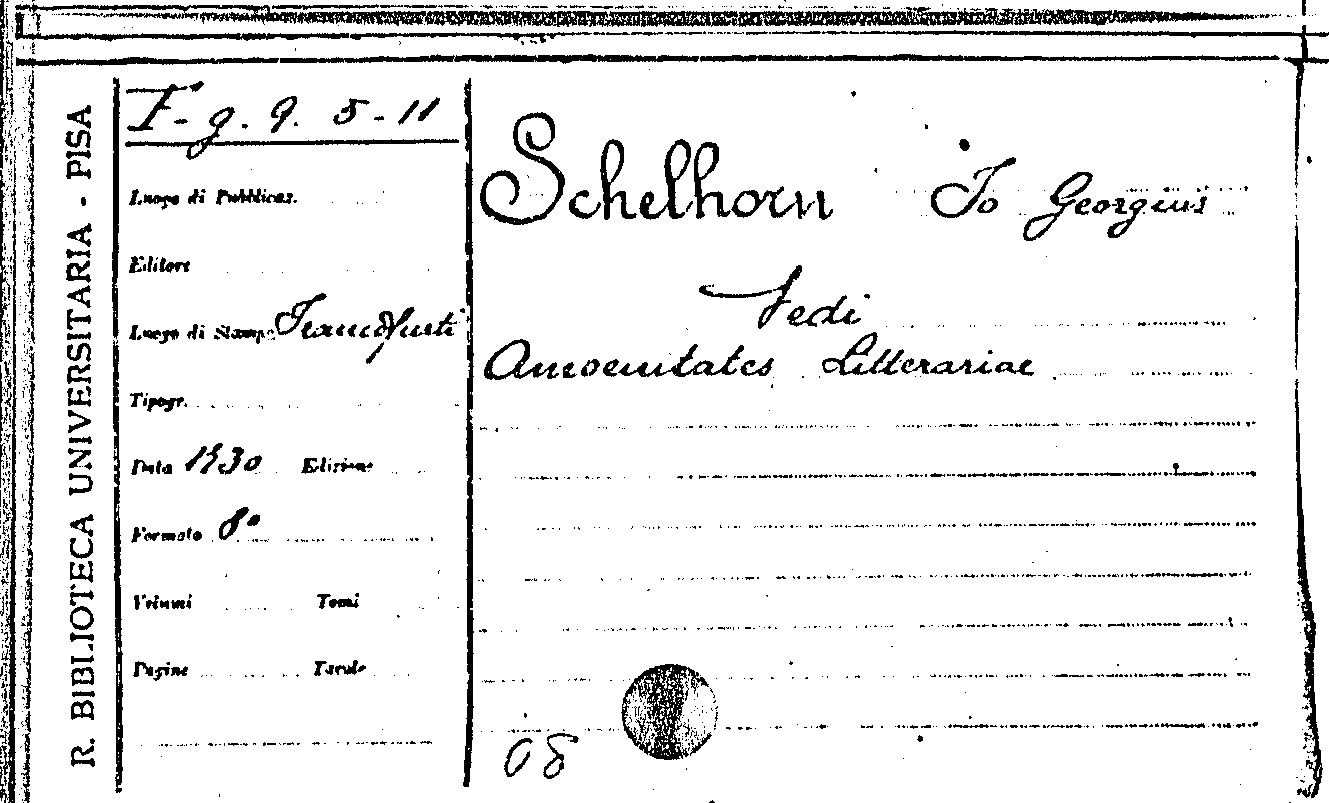 R. BIBLIOTECA UNIVERSITARIA - PISA
F. g. 9. 5-11
Luogo di Pubblicaz.
Editore
Luogo di Stampa Francofurti
Tipogr.
Data 1730 Edizione
Formato 8º
Volumi Tomi
Pagine Tavole
Schelhorn Jo Georgius
Vedi
Amoenitates Litterariae
08